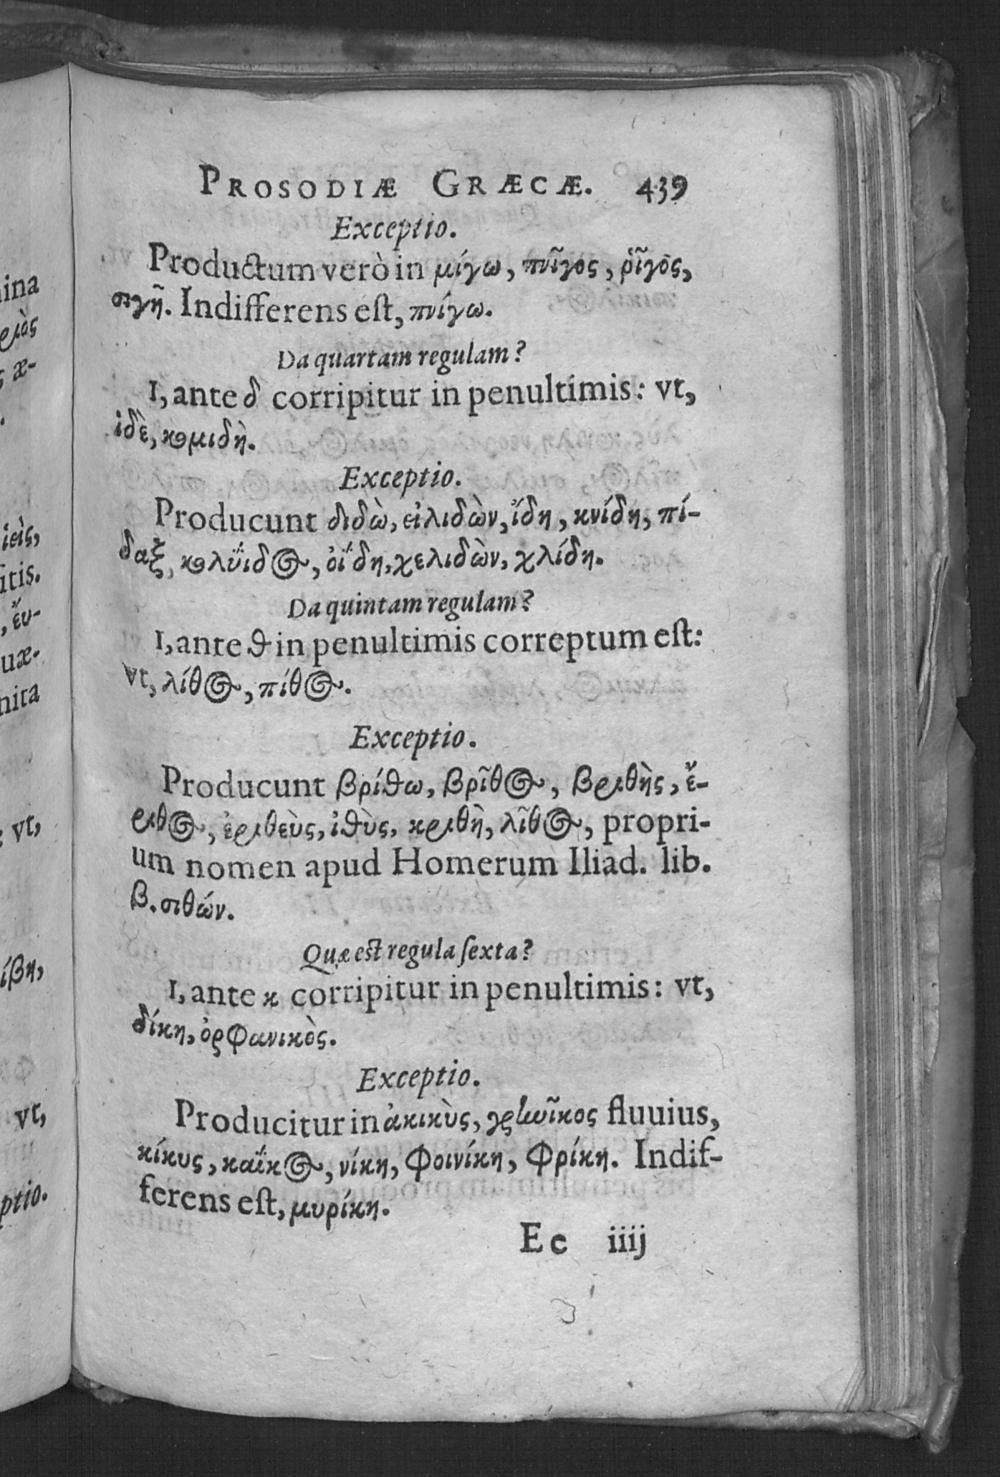 PROSODIÆ GRÆCÆ. 439
Exceptio.
Productum verò in μίγω, πνῖγος, ῥῖγος,
σιγῆ. Indifferens est, πνίγω.
Da quartam regulam?
I, ante δ corripitur in penultimis: vt,
ἰδὲ, κομιδὴ.
Exceptio.
Producunt διδὼ, εἰλιδὼν, ἴδη, κνίδη, πί-
δαξ, κολΰιδος, οἴδη, χελιδὼν, χλίδη.
Da quintam regulam?
I, ante θ in penultimis correptum est:
vt, λίθος, πίθος.
Exceptio.
Producunt βρίθω, βρῖθος, βριθὴς, ἔ-
ριθος, ἐριθεὺς, ἰθὺς, κριθὴ, λῖθος, propri-
um nomen apud Homerum Iliad. lib.
β. σιθών.
Quæ est regula sexta?
I, ante κ corripitur in penultimis: vt,
δίκη, ὀρφανικὸς.
Exceptio.
Producitur in ἀκικὺς, fluuius,
κίκυς, καΐκος, νίκη, φοινίκη, φρίκη. Indif-
ferens est, μυρίκη.
Ee iiij
ina
ριὸς
æ-
ἱεὶς,
itis.
, ἔυ-
uæ-
nita
vt,
ίβη,
vt,
ptio.